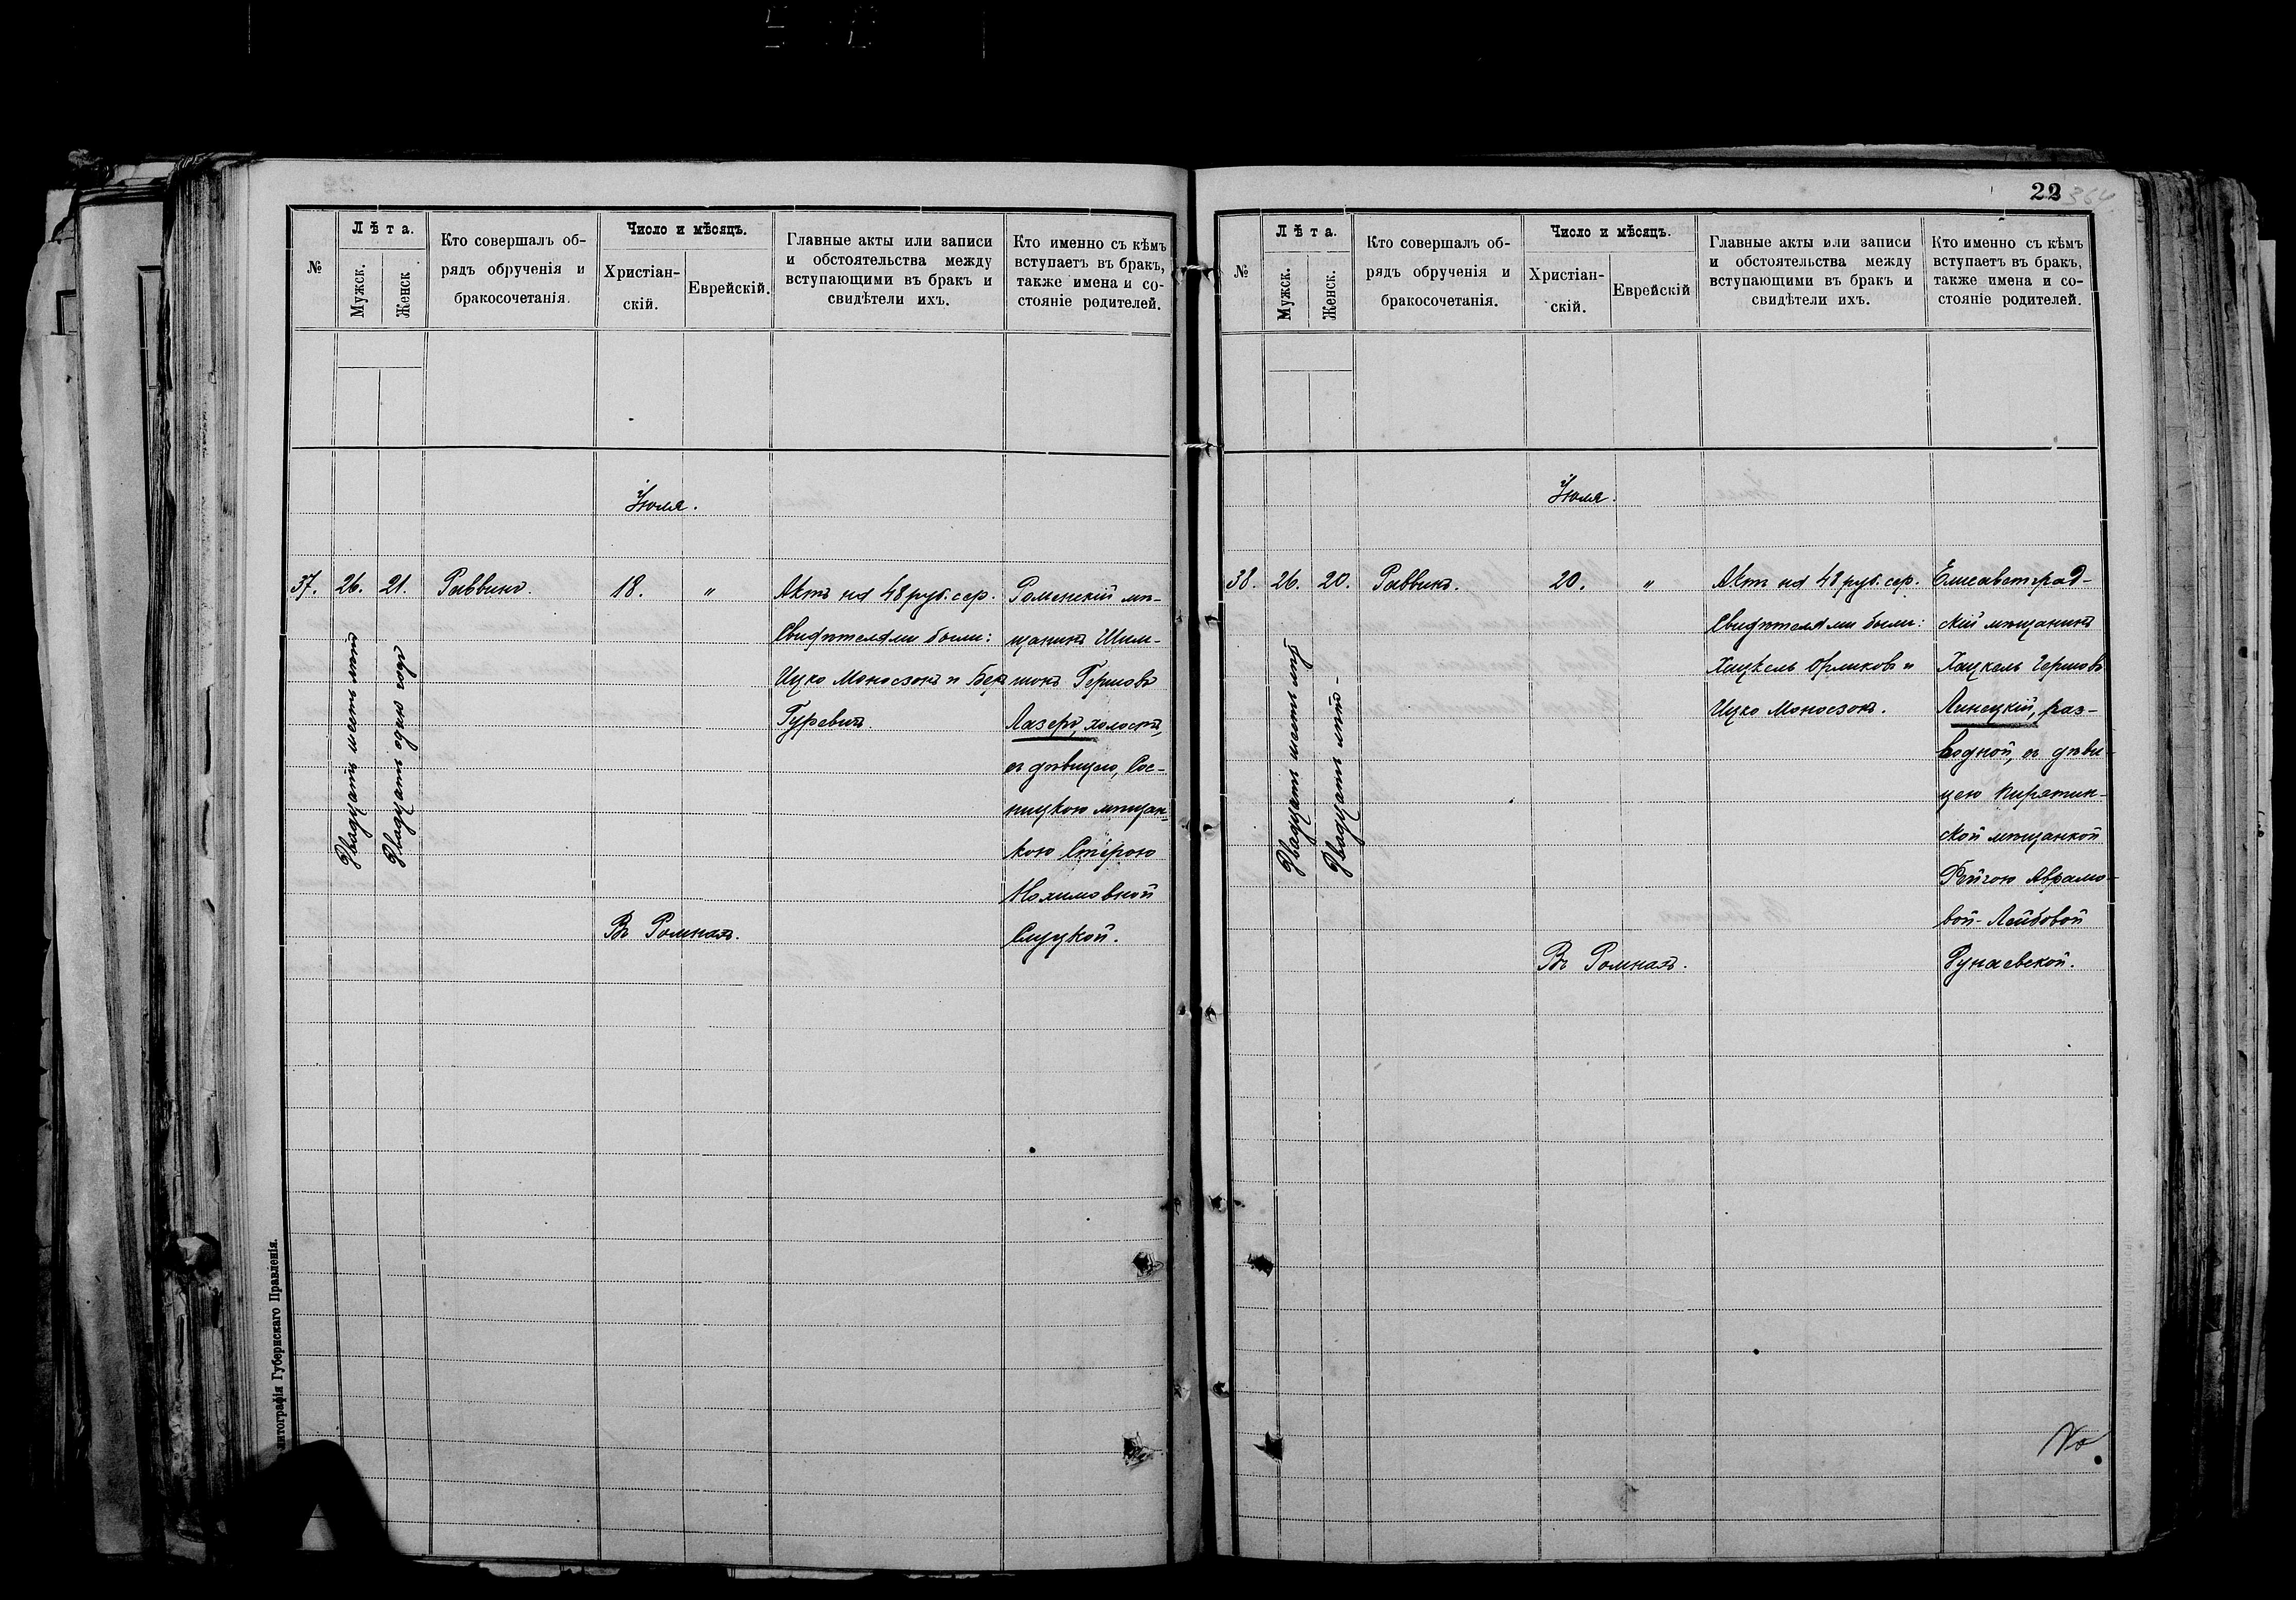 №
Лѣта.
Мужск.
Женск.
Кто совершалъ об-
рядъ обрученія и
бракосочетанія.
Число и мѣсяцъ.
Христіан-
скій.
Еврейскій.
Главные акты или записи
и обстоятельства между
вступающими въ бракъ и
свидѣтели ихъ.
Кто именно съ кѣмъ
вступаетъ въ бракъ,
также имена и со-
стояніе родителей.
Іюля.
37.
26.
Двадцать шесть лѣтъ
21.
Двадцать одинъ годъ
Раввинъ.
18.
"
Въ Ромнахъ.
Актъ на 48 руб. сер.
Свидѣтелями были:
Ицко Моносзонъ и Бер
Гуревичъ.
Роменскій мѣ-
щанинъ Шим-
шонъ Гершовъ
Лазеръ, холостъ,
съ дѣвицею, Сос-
ницкою мѣщан-
кою Стерою
Нохимовной
Слуцкой.
литографія Губернскаго Правленія.
22
364
№
Лѣта.
Мужск.
Женск.
Кто совершалъ об-
рядъ обрученія и
бракосочетанія.
Число и мѣсяцъ.
Христіан-
скій.
Еврейскій
Главные акты или записи
и обстоятельства между
вступающими въ бракъ и
свидѣтели ихъ.
Кто именно съ кѣмъ
вступаетъ въ бракъ,
также имена и со-
стояніе родителей.
Іюля.
38.
26.
Двадцать шесть лѣтъ
20.
Двадцать лѣтъ-
Раввинъ.
20.
"
Въ Ромнахъ.
Актъ на 48 руб. сер.
Свидѣтелями были:
Хацкель Орликовъ и
Ицко Моносзонъ.
Елисаветград-
скій мѣщанинъ
Хацкель Гершовъ
Линецкій, раз-
водной, съ дѣви-
цею Пирятин-
ской мѣщанкой
Рейзою Аврамо-
вой-Лейбовой
Дунаевской.